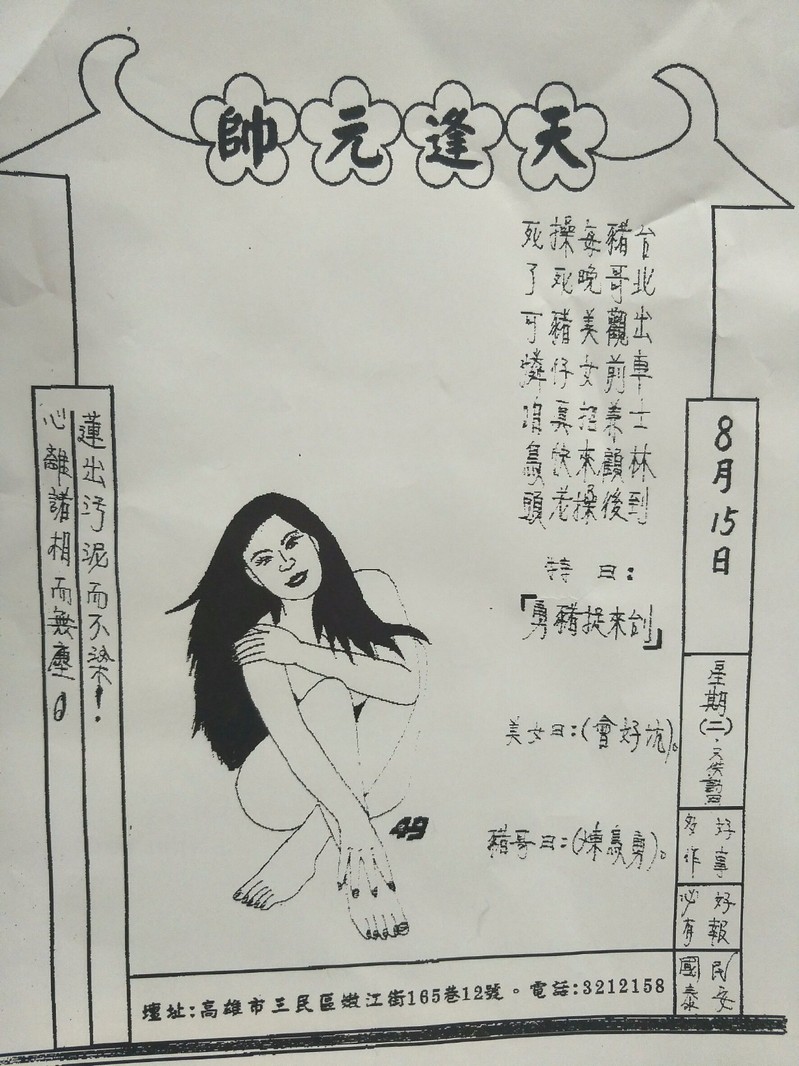 天逢元帥
台北出車士林到
豬哥觀前兼顧後
每晚美女招來操
操死豬仔真快老
死了可憐 鳥頭
特曰：
「勇豬捉來创」
美女曰：(會好坑)。
豬哥曰：(煉鳥勇)。
8月15日
星期(二)
好事多作
好報必有
民安國泰
蓮出汚泥而不染！
心離諸相而無塵。
49
壇址：高雄市三民區嫩江街165巷12號。電話：3212158